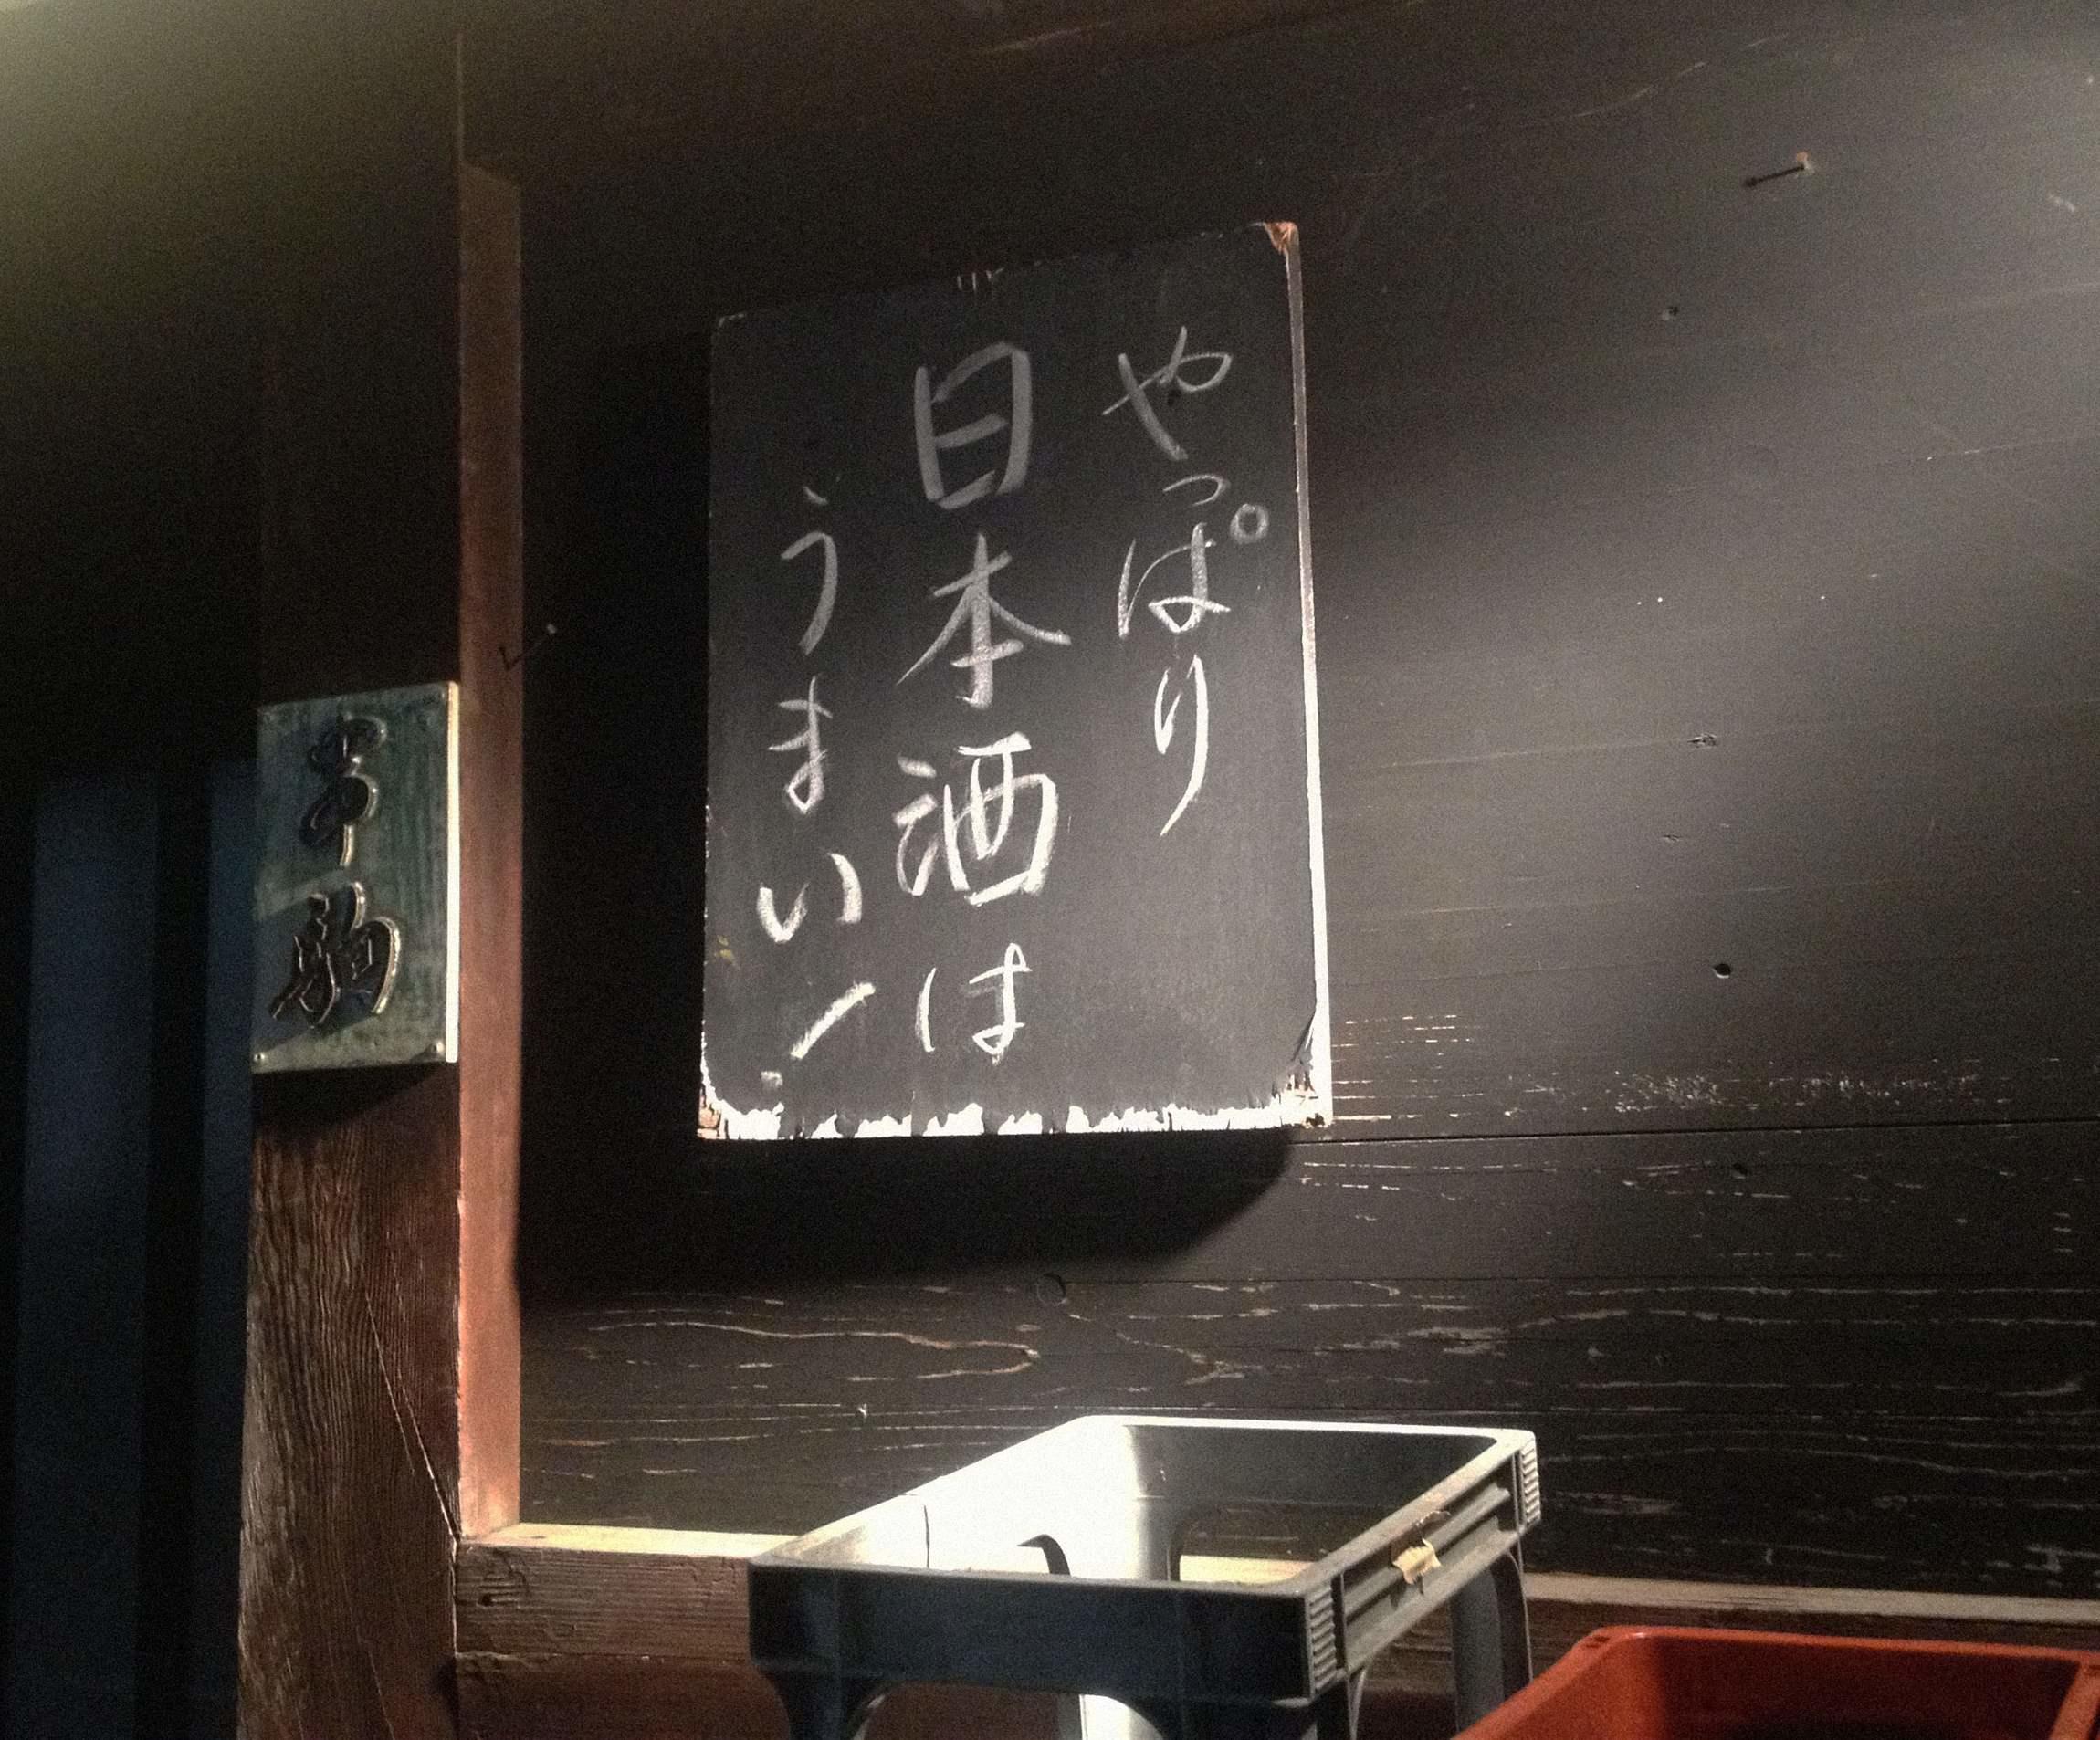 やっぱり
日本酒は
うまいー!